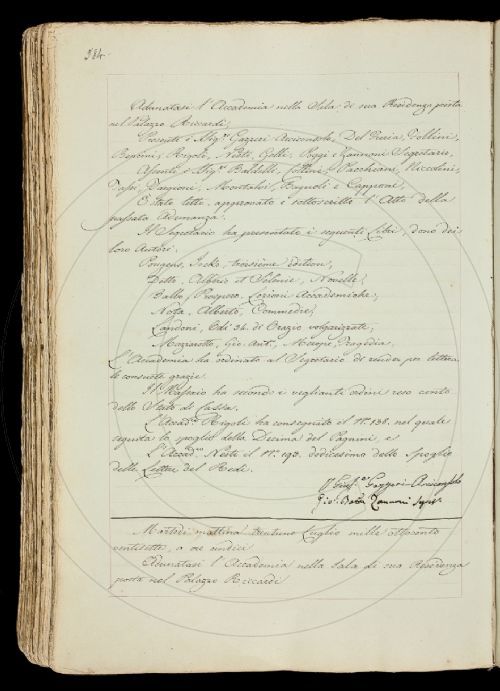 384.
Adunatasi l'Accademia nella Sala di sua Residenza posta
nel Palazzo Riccardi,
Presenti i Sig.ri Gazzeri Arciconsolo, Del Furia, Follini,
Bencini, Rigoli, Nesti, Gelli, Poggi e Zannoni Segretario,
Assenti i Sig.ri Baldelli, Collini, Pacchiani, Niccolini,
Tassi, Targioni, Montalvi, Bagnoli e Capponi,
È stato letto, approvato e sottoscritto l'Atto della
passata Adunanza.
Il Segretario ha presentato i seguenti Libri, dono dei
loro Autori.
Pougens, Jocko troisième édition,
Dello, Alberio et Selenie, Novelle,
Balbo Prospero, Lezioni Accademiche,
Nota, Alberto, Commedie,
Landoni, Odi 34. di Orazio volgarizzate,
Gio. Ant., Merope, Tragedia.
L'Accademia ha ordinato al Segretario di render per lettera
le consuete grazie.
Il Massaio ha secondo i veglianti ordini reso conto
dello Stato di Cassa.
L'Accad.co Rigoli ha consegnato il N.° 138. nel quale
seguita lo spoglio della Decima del Pagnini, e
L'Accad.co Nesti il N.° 193. dodicesimo dello Spoglio
delle Lettere del Redi.
Gius.e Gazzeri Arciconsolo
Gio. Batta Zannoni Segr.
Martedì mattina trentuno Luglio mille ottocento
ventisette, a ore undici
Adunatasi l'Accademia nella Sala di sua Residenza
posta nel Palazzo Riccardi